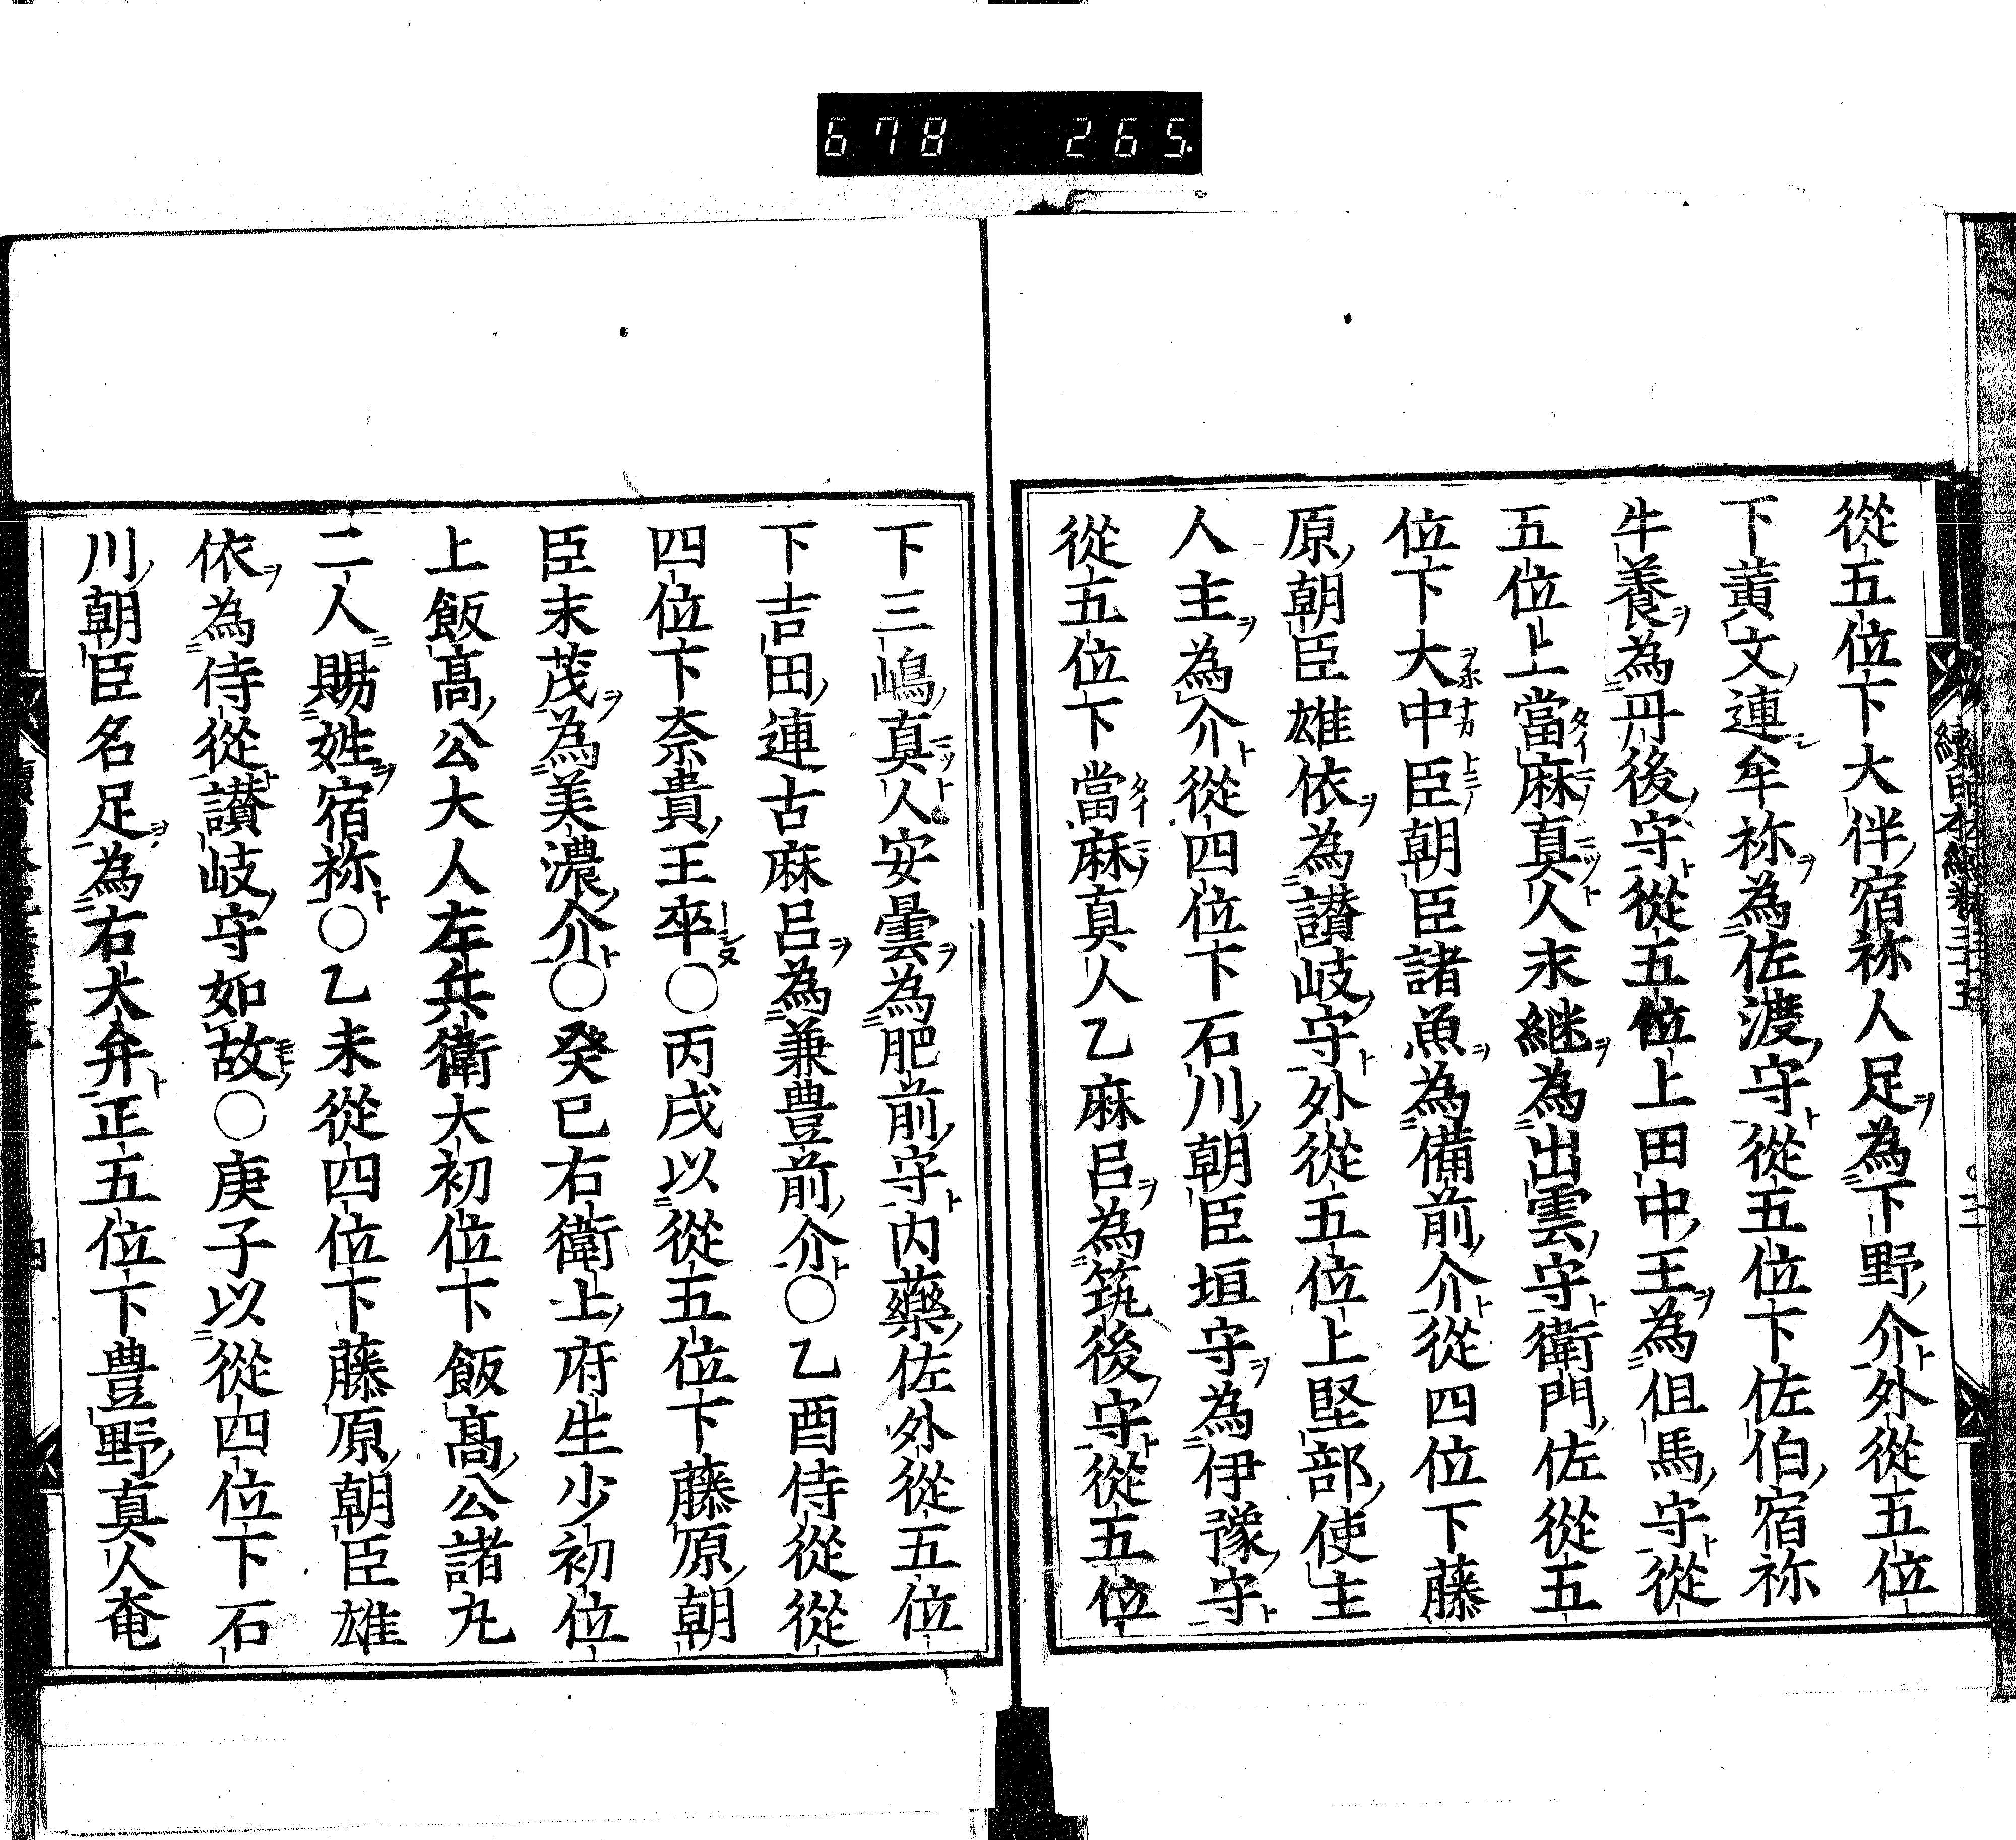 678 265
從五位下大伴宿祢人足為下野介外從五位
下黃文連牟祢為佐渡守從五位下佐伯宿祢
牛養為丹後守從五位上田中王為伹馬守從
五位上當麻真人永継為出雲守衛門佐從五
位下大中臣朝臣諸魚為備前介從四位下藤
原朝臣雄依為讃岐守外從五位上堅部使主
人主為介從四位下石川朝臣垣守為伊豫守
從五位下當麻真人乙麻呂為筑後守從五位
下三嶋真人安曇為肥前守内藥佐外從五位
下吉田連古麻呂為兼豊前介〇乙酉侍從從
四位下奈貴王卒〇丙戌以從五位下藤原朝
臣末茂為美濃介〇癸巳右衛士府生少初位
上飯髙公大人左兵衛大初位下飯髙公諸丸
二人賜姓宿祢〇乙未從四位下藤原朝臣雄
依為侍從讃岐守如故〇庚子以從四位下石
川朝臣名足為右大弁正五位下豊野真人奄